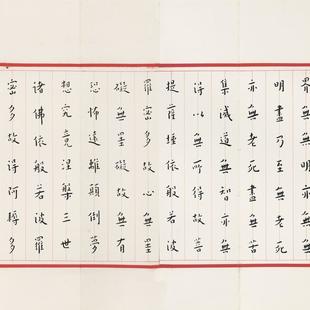 界無無明亦無無
明盡乃至無老死
亦無老死盡無苦
集滅道無智亦無
得以無所得故菩
提薩埵依般若波
羅蜜多故心無罣
礙無罣礙故無有
恐怖遠離顛倒夢
想究竟涅槃三世
諸佛依般若波羅
蜜多故得阿耨多